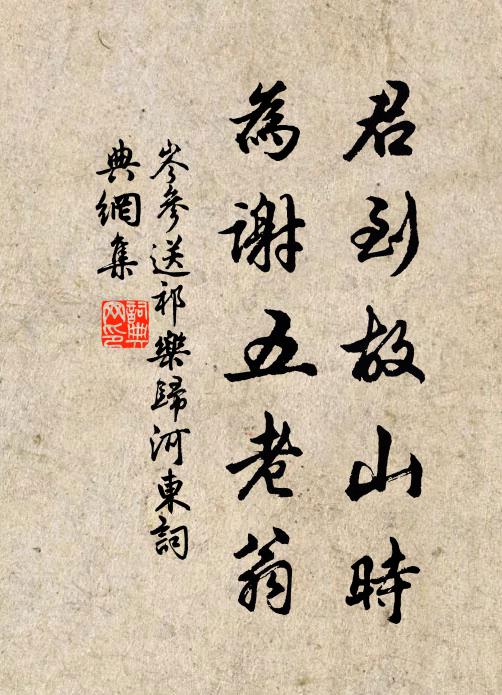 君到故山時
為謝五老翁
岑參送祁樂歸河東詞
典網集
詞典
网印